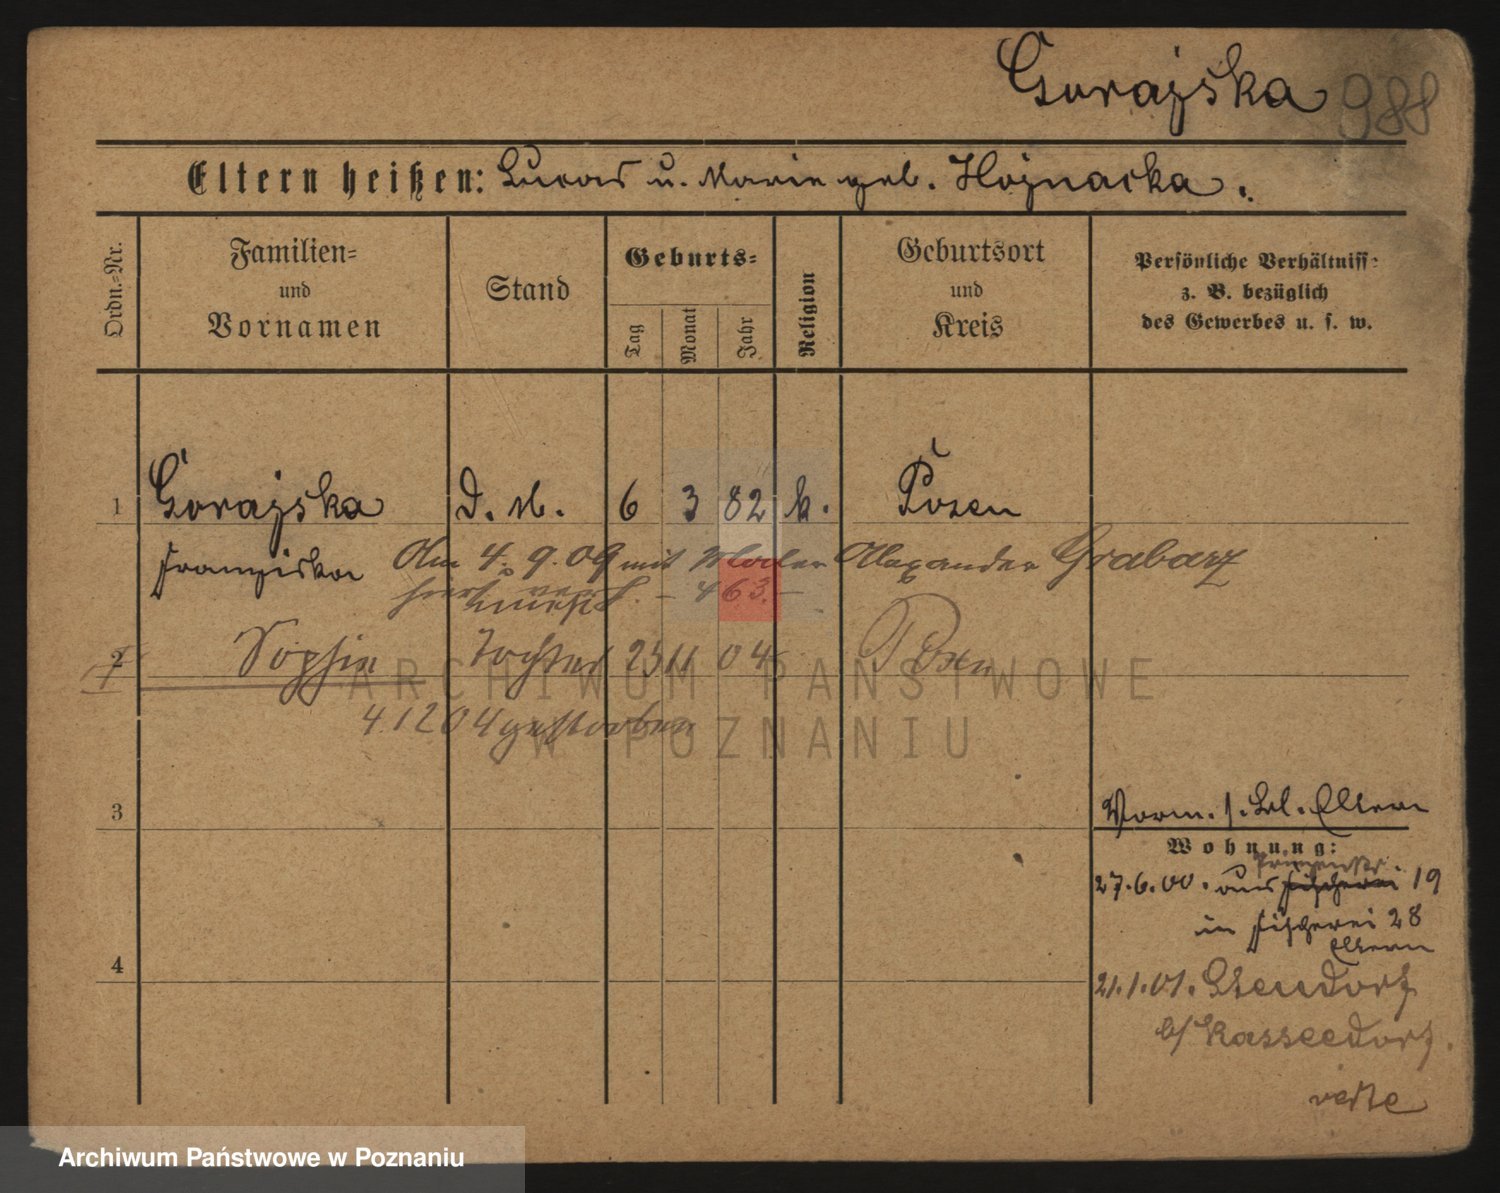 Gorajska 988
Eltern heißen: Lucas u. Marie geb. Hojnacka.
Ordn.-Nr.
Familien-
und
Vornamen
Stand
Geburts-
Tag
Monat
Jahr
Religion
Geburtsort
und
Kreis
Persönliche Verhältniss-
z. B. bezüglich
des Gewerbes u. s. w.
1 Gorajska D. M. 6 3 82 k. Posen
Franziska Am 4. 9. 09 mit Maler Alexander Grabarz
hier - 463. -
2 Sophie Tochter 23 11 04 Posen
4 12 04 gestorben
ARCHIWUM PAŃSTWOWE
W POZNANIU
3
Vorm. s. Bl. Eltern
Wohnung:
27.6.00. aus Fischerei 19
in Fischerei 28
Eltern
4
21.1.01. Stendorf
b/ Kasseedorf.
verte
Archiwum Państwowe w Poznaniu